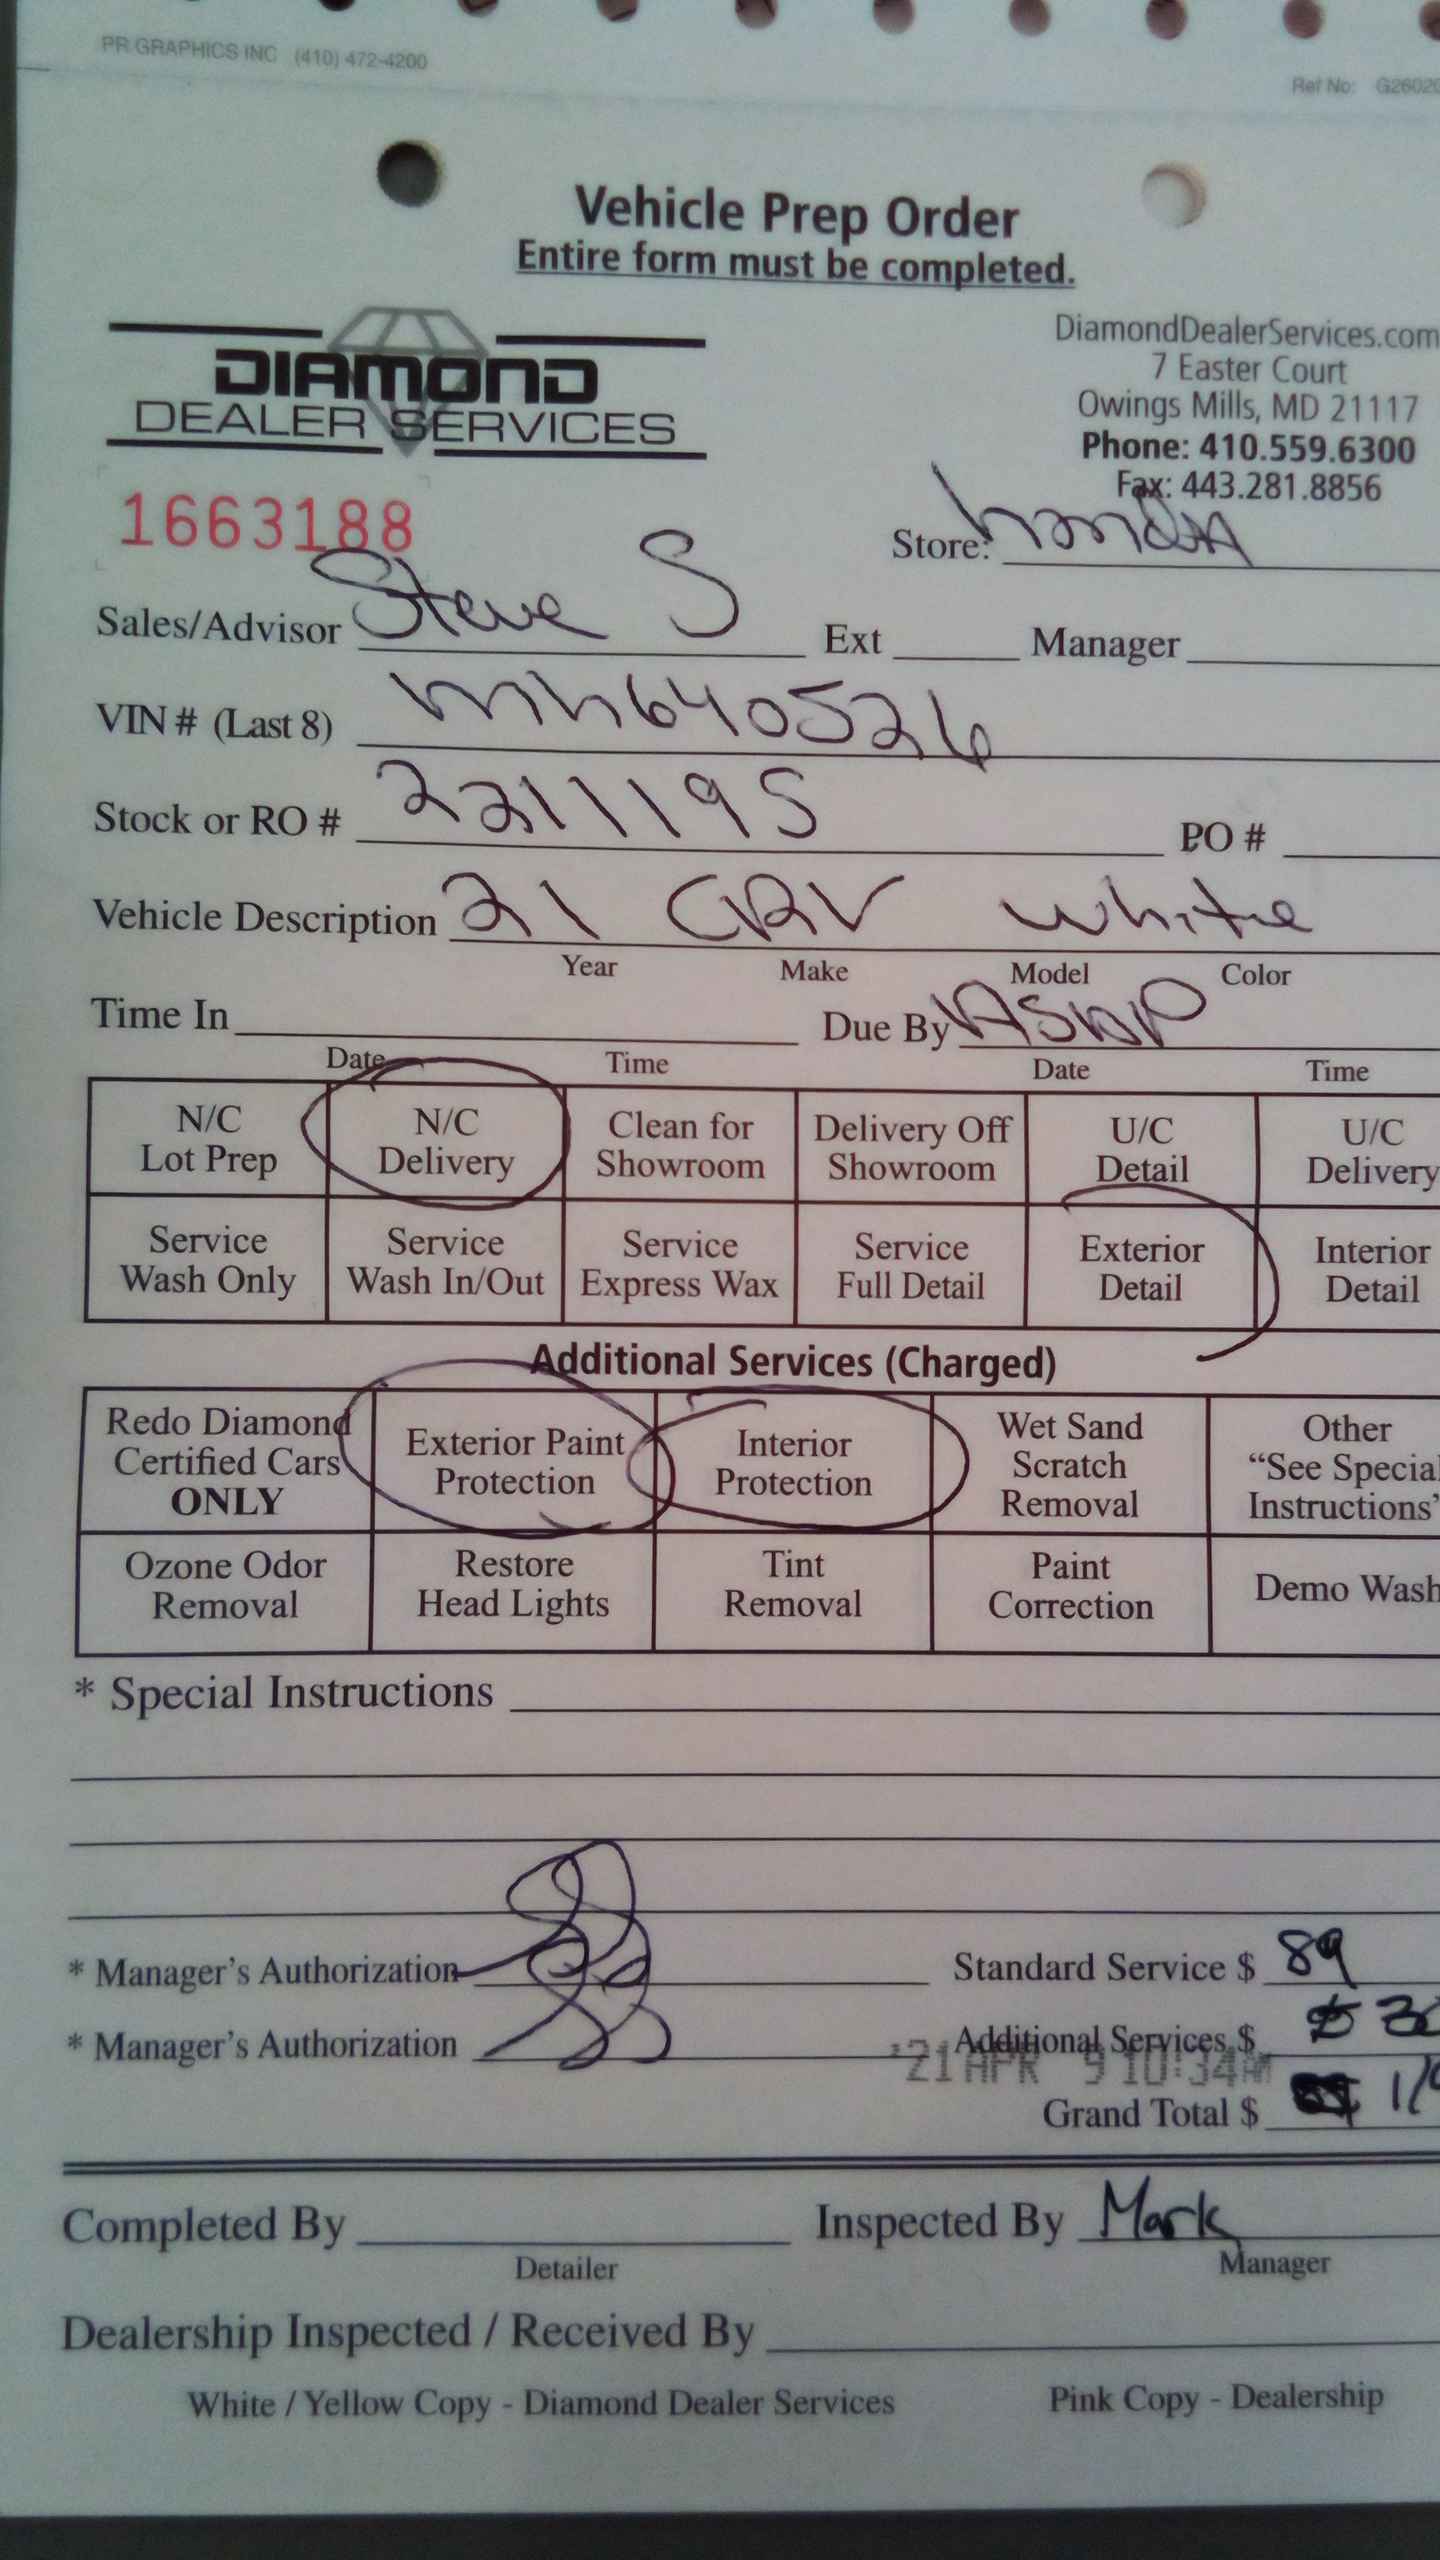 PR GRAPHICS INC (410) 472-4200
Ref No: G2602
Vehicle Prep Order
Entire form must be completed.
DIAMOND
DEALER SERVICES
DiamondDealerServices.com
7 Easter Court
Owings Mills, MD 21117
Phone: 410.559.6300
Fax: 443.281.8856
1663188
Store: honda
Sales/Advisor Steve S Ext Manager
VIN # (Last 8) mh640526
Stock or RO # 2211195 PO #
Vehicle Description 21 CRV white
Year Make Model Color
Time In Due By ASAP
Date Time Date Time
N/C Lot Prep N/C Delivery Clean for Showroom Delivery Off Showroom U/C Detail U/C Delivery
Service Wash Only Service Wash In/Out Service Express Wax Service Full Detail Exterior Detail Interior Detail
Additional Services (Charged)
Redo Diamond Certified Cars ONLY Exterior Paint Protection Interior Protection Wet Sand Scratch Removal Other "See Special Instructions"
Ozone Odor Removal Restore Head Lights Tint Removal Paint Correction Demo Wash
* Special Instructions
* Manager's Authorization Standard Service $ 89
* Manager's Authorization Additional Services $
'21 APR 9 10:34AM
Grand Total $
Completed By Inspected By Mark
Detailer Manager
Dealership Inspected / Received By
White / Yellow Copy - Diamond Dealer Services Pink Copy - Dealership